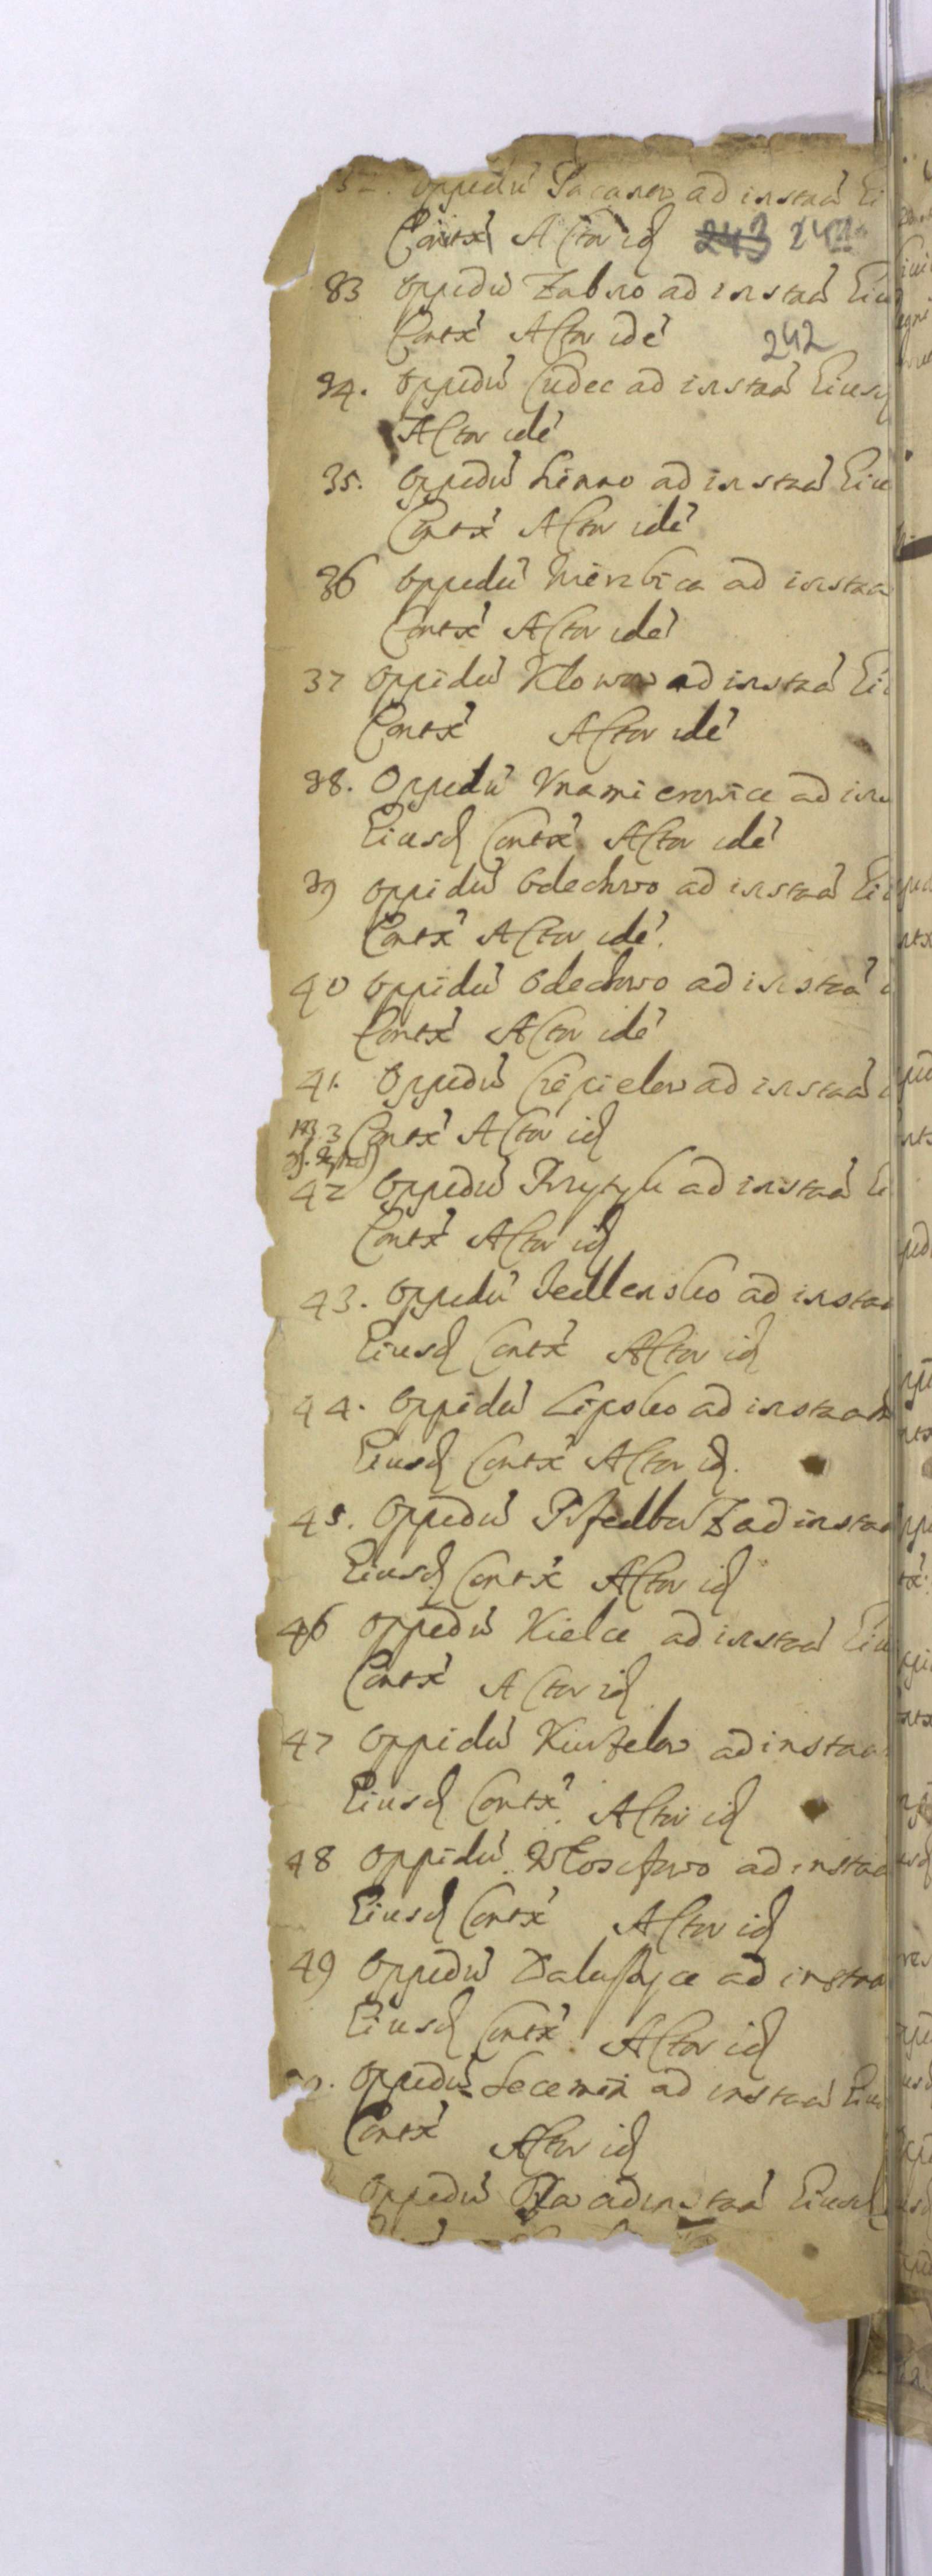 Oppidu Pacanow ad instaa Ei
Contx Actor id 243 242
33 Oppidu Zabno ad instaa Eiu
Contx Actor ide 242
34. Oppidu Cudec ad instaa Eiusd
Actor ide
35. Oppidu ad instaa Eiu
Contx Actor ide
36 Oppidu Wierzbica ad instaa
Contx Actor ide
37 Oppidu Klowow ad instaa Ei
Contx Actor ide
38. Oppidu Knamierowice ad ins
Eiusd Contx Actor ide
39 Oppidu Odechwo ad instaa Ei
Contx Actor ide.
40 Oppidu Odechwo ad instaa
Contx Actor ide
41. Oppidu Ciepielow ad instaa
Contx Actor id
42 Oppidu Przytyk ad instaa Ei
Contx Actor id
43. Oppidu Jedlensko ad instaa
Eiusd Contx Actor id
44. Oppidu Lipsko ad instaa
Eiusd Contx Actor id.
45. Oppidu Przedborz ad instaa
Eiusd Contx Actor id
46 Oppidu Kielce ad instaa Eiu
Contx Actor id
47 Oppidu Kurzelow ad instaa
Eiusd Contx Actor id
48 Oppidu Wloszczowo ad instaa
Eiusd Contx Actor id
49 Oppidu Daleszyce ad instaa
Eiusd Contx Actor id
Oppidu Secemin ad instaa Eiu
Contx Actor id
Oppidu ad instaa Eiusd